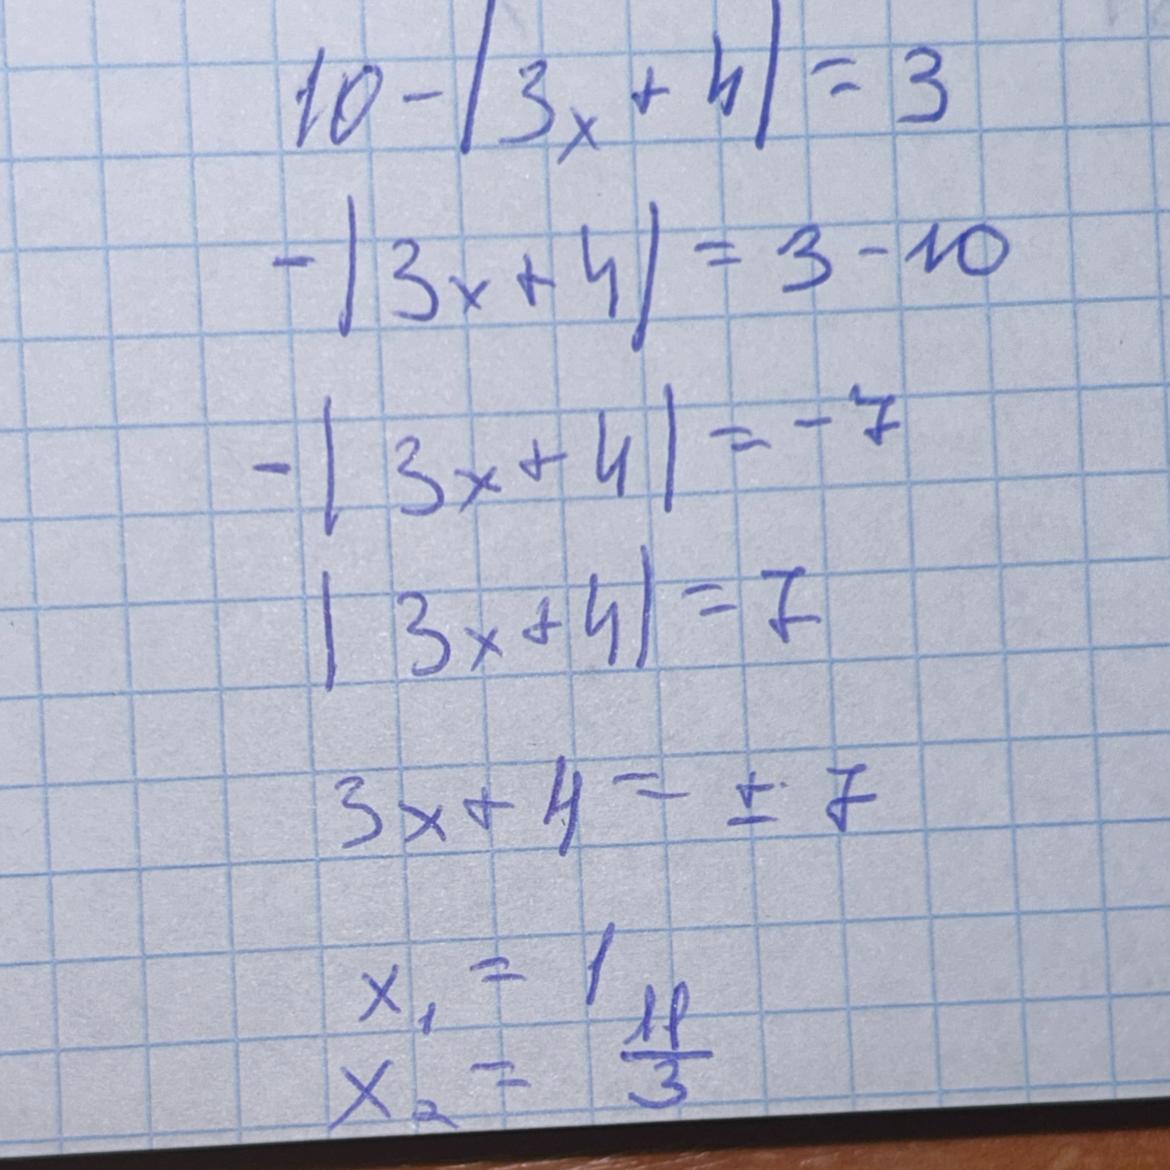 10 - |3x + 4| = 3
-|3x + 4| = 3 - 10
-|3x + 4| = -7
|3x + 4| = 7
3x + 4 = ± 7
x₁ = 1
x₂ = 11/3